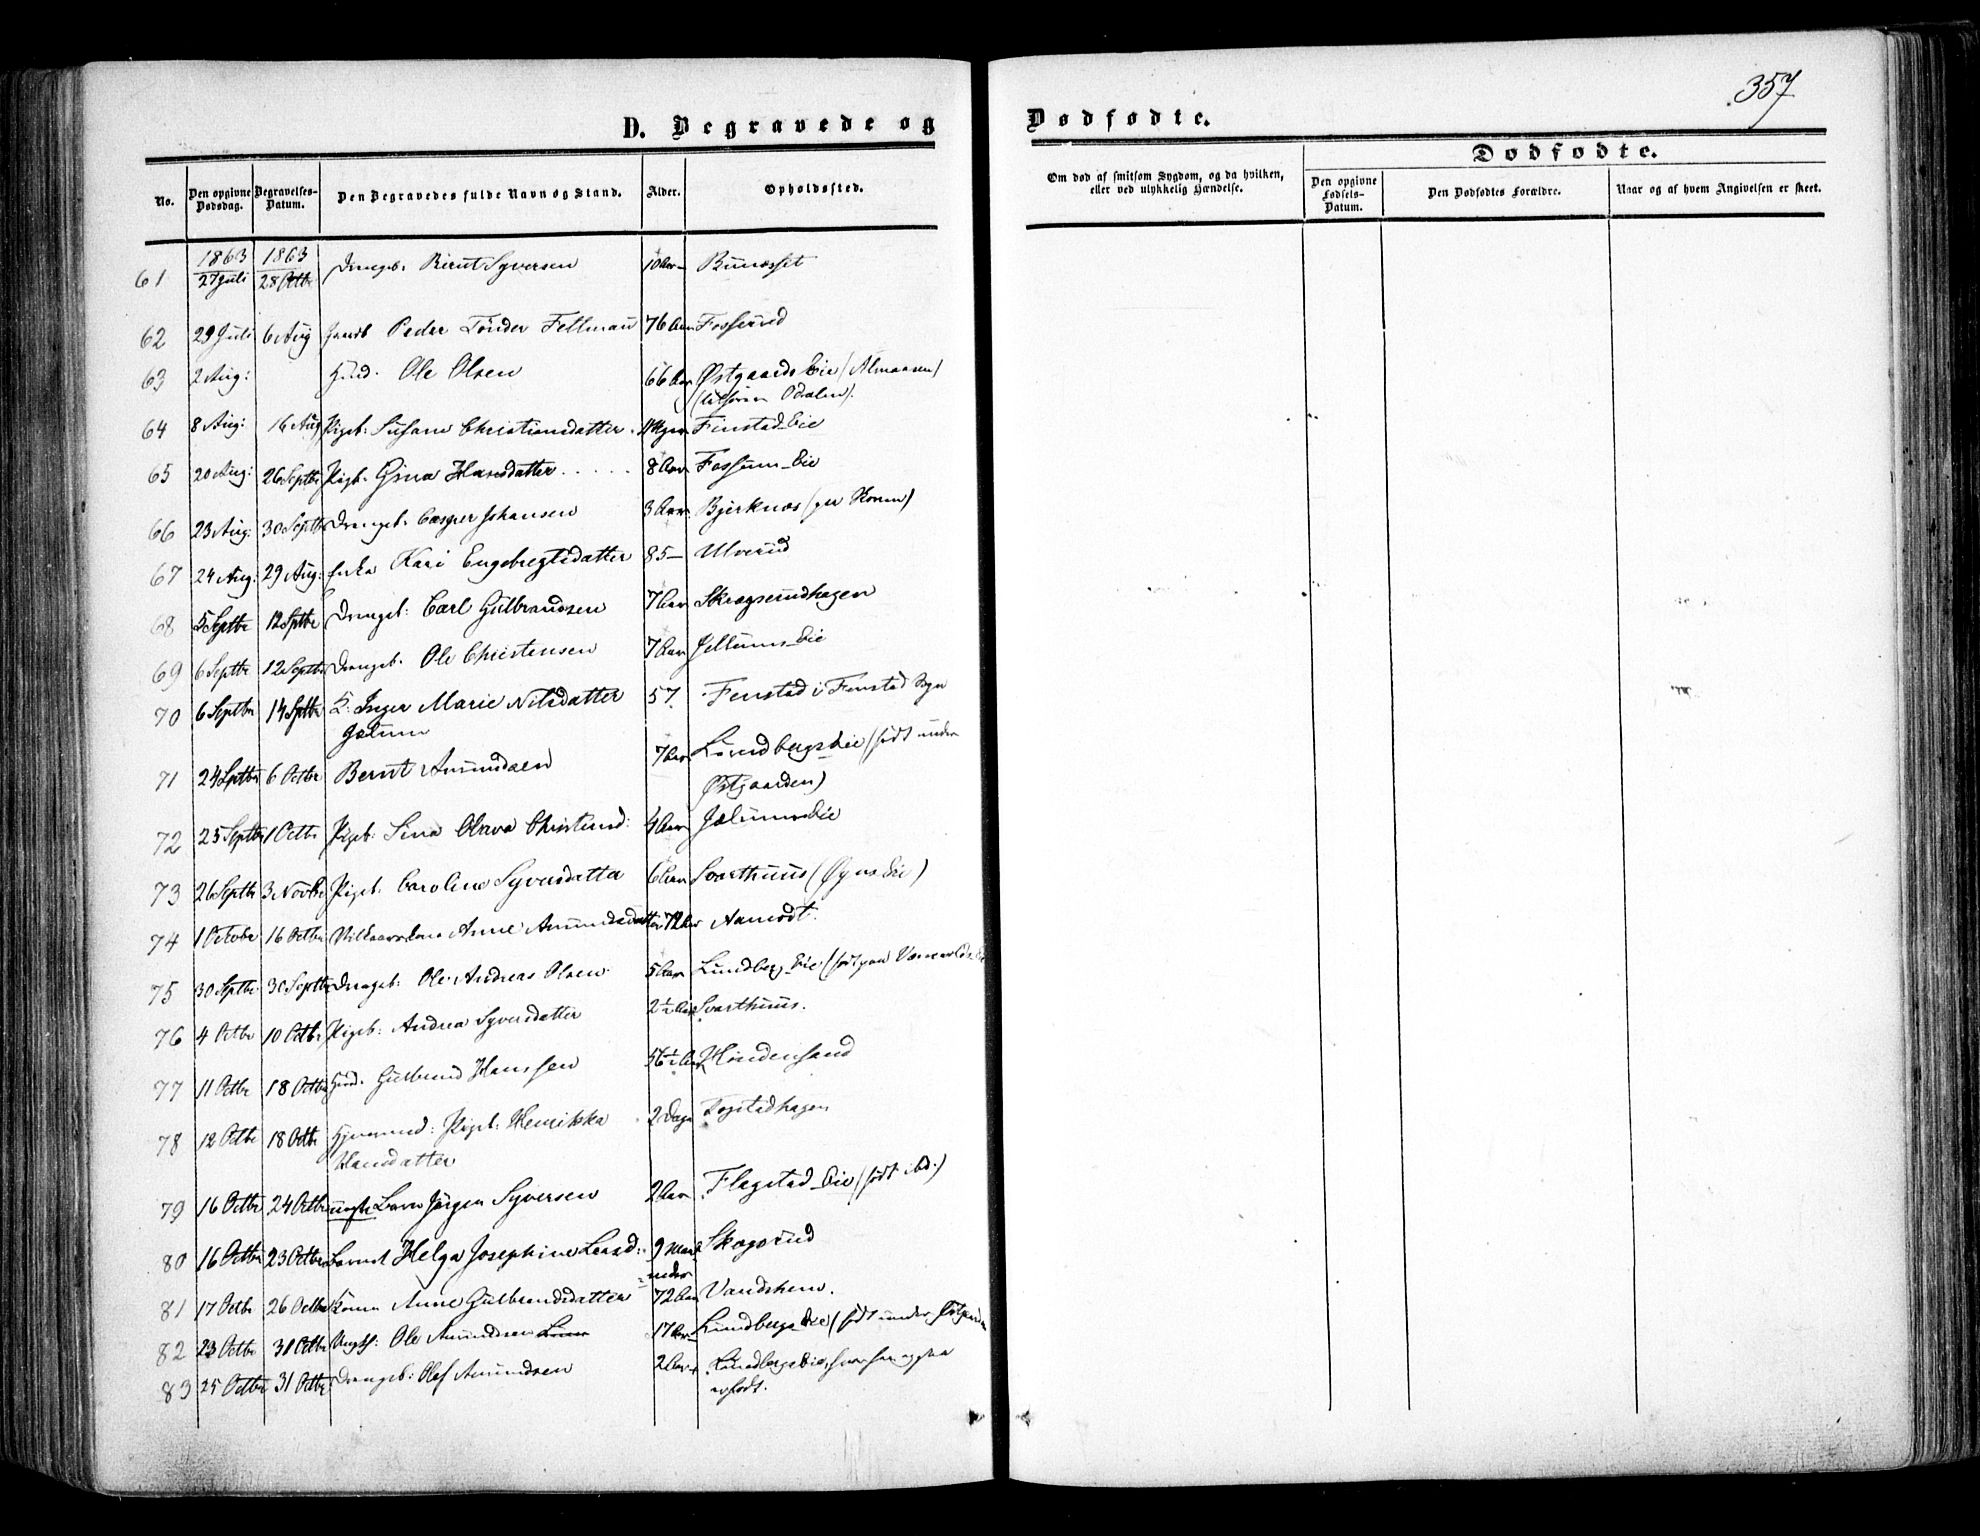 357
D. Begravede og Dødfødte.
No.
Den opgivne Dødsdag.
Begravelses-Datum.
Den Begravedes fulde Navn og Stand.
Alder.
Opholdssted.
Om død af smitsom Sygdom, og da hvilken, eller ved ulykkelig Hændelse.
Dødfødte.
Den opgivne Fødsels-Datum.
Den Dødfødtes Forældre.
Naar og af hvem Angivelsen er skeet.
1863 1863
61 27 Juli 28 Octbr Drengeb: Bernt Syversen 10 Aar
62 29 Juli 6 Aug Peder Tønder Fellman 76 Aar Fosserud
63 2 Aug: Huusd. Ole Olsen 66 Aar Østgaards Eie (Almaasen)
Odalen).
64 8 Aug: 16 Aug Pigeb: Susane Christiansdatter Finstad-Eie
65 20 Aug: 26 Septbr Pigb. Gina Hansdatter 8 Aar Fossum-Eie
66 23 Aug: 30 Septbr Drengeb. Casper Johansen 3 Aar Bjerknæs
67 24 Aug: 29 Aug: Enke Kari Engebregtsdatter 85 - Ulverud
68 5 Septbr 12 Septbr Drengeb: Carl Gulbrandsen 7 Aar Skragerudhagen
69 6 Septbr 12 Septbr Drengeb. Ole Christensen 7 Aar Jellums-Eie
70 6 Septbr 14 Septbr K: Inger Marie Nilsdatter 57. Fenstad i Fenstad Sogn
Jælum
71 24 Septbr 6 Octbr Bernt Amundsen 7 Aar Lundbergs Eie (født under
Østgaarden)
72 25 Septbr 1 Octbr Pigeb: Lina Olava Christiansd: 4 Aar Jælums Eie
73 26 Septbr 3 Novbr Pigeb. Caroline Syversdatter 6 Aar Svarthuus (Øyns Eie)
74 1 Octobr 16 Octbr Vilkaarskone Anne Amundsdatter 72 Aar Aamodt.
75 30 Septbr 30 Septbr Drengeb: Ole Andreas Olsen 5 Aar Lundberg-Eie (født paa
76 4 Octbr 10 Octbr Pigeb: Andrea Syversdatter 2½ Aar Svarthuus.
77 11 Octbr 18 Octbr Huusd. Gulbrand Hanssen 56½ Aar
78 12 Octbr 18 Octbr Hjemmed: Pigeb: Henrikka 2 Dage Togstadhagen
Hansdatter
79 16 Octbr 24 Octbr uægte Barn Jørgen Syversen 2 Aar Flagstad-Eie (født ibd.)
80 16 Octbr 23 Octbr Barnet Helga Josephine Larsd: 9 Maaneder Skogsrud
81 17 Octbr 26 Octbr Konen Anne Gulbrandsdatter 72 Aar Vandshem.
82 23 Octbr 31 Octbr Ungk: Ole Amundsen 17 Aar Lundbergs Eie (født under Østgaarden
83 25 Octbr 31 Octbr Drengeb: Olaf Amundsen 2 Aar Lundbergs Eie, hvor han ogsaa
er født.